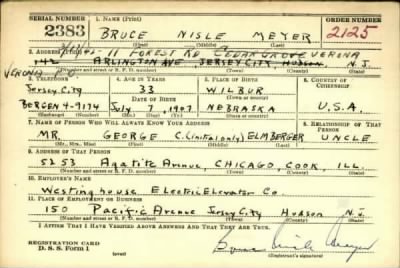 SERIAL NUMBER 1. NAME (Print) ORDER NUMBER
2383 BRUCE NISLE MEYER 2125
(First) (Middle) (Last)
2. ADDRESS (Print)
11 FOREST RD CEDAR GROVE VERONA
142 ARLINGTON AVE JERSEY CITY, HUDSON, N.J.
VERONA (Number, street or R. F. D. number) (Town) (County) (State)
3. TELEPHONE 4. AGE IN YEARS 5. PLACE OF BIRTH 6. COUNTRY OF CITIZENSHIP
Jersey City 33 WILBUR
DATE OF BIRTH
BERGEN 4-9174 July 7 1907 NEBRASKA U.S.A.
(Exchange) (Number) (Mo.) (Day) (Yr.) (State or country)
7. NAME OF PERSON WHO WILL ALWAYS KNOW YOUR ADDRESS 8. RELATIONSHIP OF THAT PERSON
MR. GEORGE C. (initial only) ELMBERGER UNCLE
(Mr., Mrs., Miss) (First) (Middle) (Last)
9. ADDRESS OF THAT PERSON
5253 Agatite Avenue, CHICAGO, COOK, ILL.
(Number, street or R. F. D. number) (Town) (County) (State)
10. EMPLOYER'S NAME
Westinghouse Electric Elevator Co.
11. PLACE OF EMPLOYMENT OR BUSINESS
150 Pacific Avenue Jersey City Hudson N.J.
(Number and street or R. F. D. number) (Town) (County) (State)
I AFFIRM THAT I HAVE VERIFIED ABOVE ANSWERS AND THAT THEY ARE TRUE.
REGISTRATION CARD
D. S. S. Form 1 (over) Bruce Nisle Meyer
(Registrant's signature)